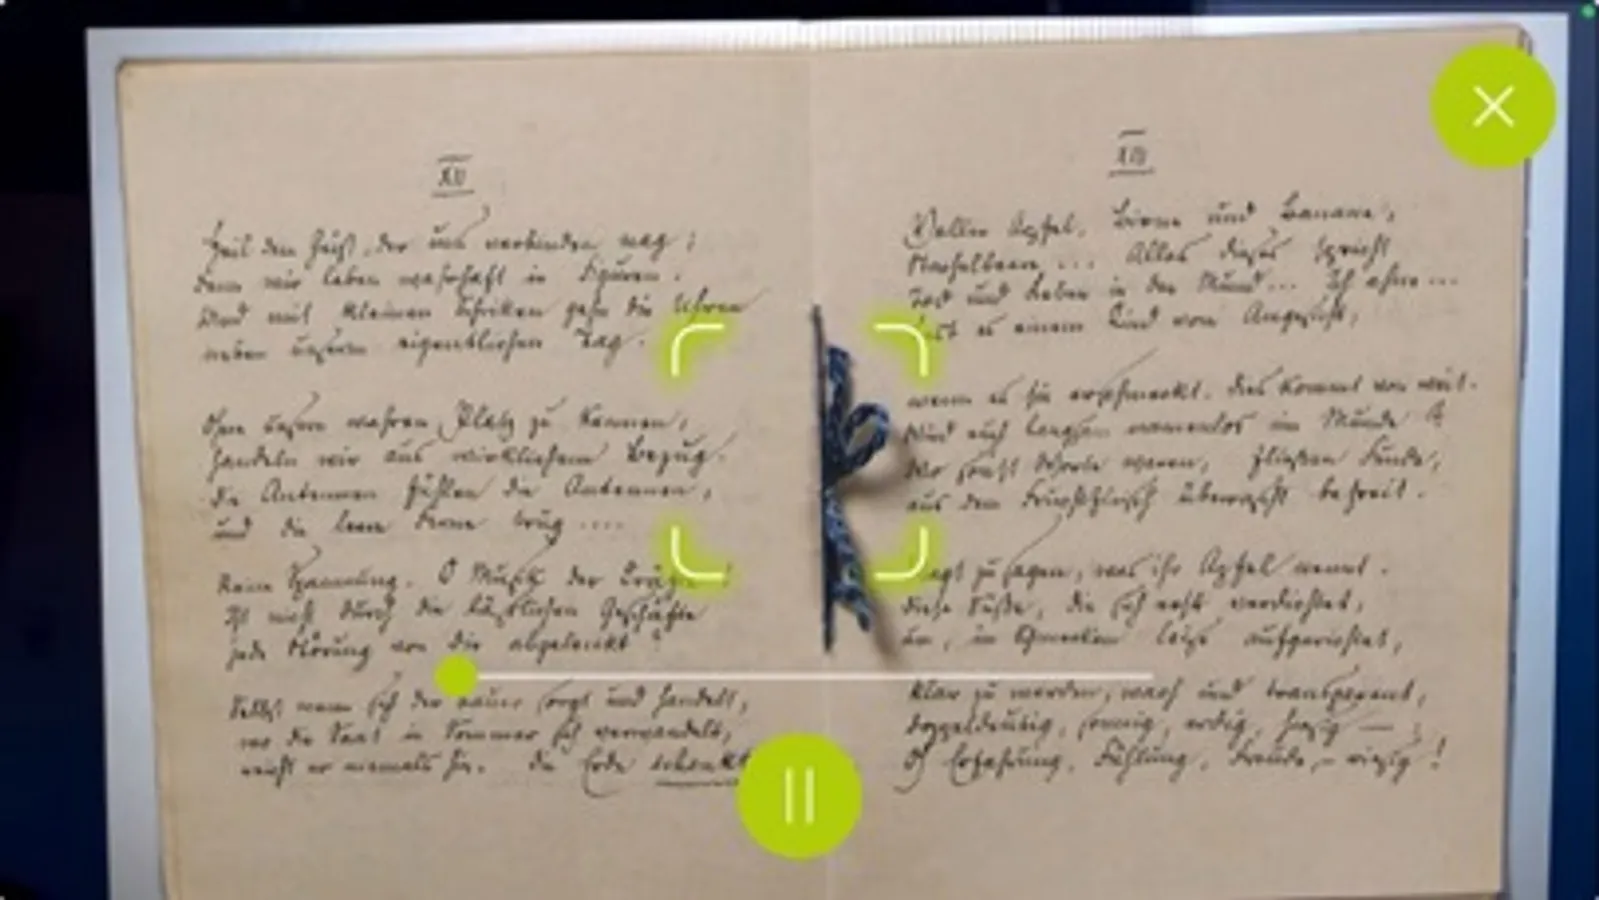 XII
Heil dem Geist, der uns verbinden mag;
denn wir leben wahrhaft in Figuren.
Und mit kleinen Schritten gehn die Uhren
neben unserm eigentlichen Tag.
Ohne unsern wahren Platz zu kennen,
handeln wir aus wirklichem Bezug.
Die Antennen fühlen die Antennen,
und die leere Ferne trug ....
Reine Spannung. O Musik der Kräfte!
Ist nicht durch die läßlichen Geschäfte
jede Störung von dir abgelenkt?
Selbst wenn sich der Bauer sorgt und handelt,
wo die Saat in Sommer sich verwandelt,
reicht er niemals hin. Die Erde schenkt
XIII
Voller Apfel, Birne und Banane,
Stachelbeere ... Alles dieses spricht
Tod und Leben in den Mund... Ich ahne...
Lest es einem Kind vom Angesicht,
wenn es sie erschmeckt. Dies kommt von weit.
Wird euch langsam namenlos im Munde?
Wo sonst Worte waren, fließen Funde,
aus dem Fruchtfleisch überrascht befreit.
Wagt zu sagen, was ihr Apfel nennt.
Diese Süße, die sich erst verdichtet,
um, im Schmecken leise aufgerichtet,
klar zu werden, wach und transparent,
doppeldeutig, sonnig, erdig, hiesig —;
O Erfahrung, Fühlung, Freude, – riesig!